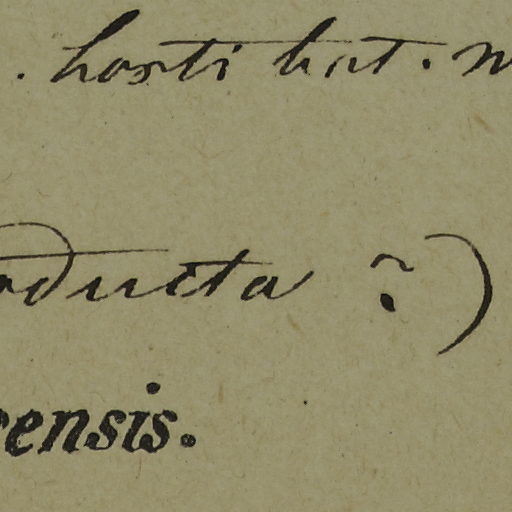 . horti bot. m
oducta ?)
ensis.